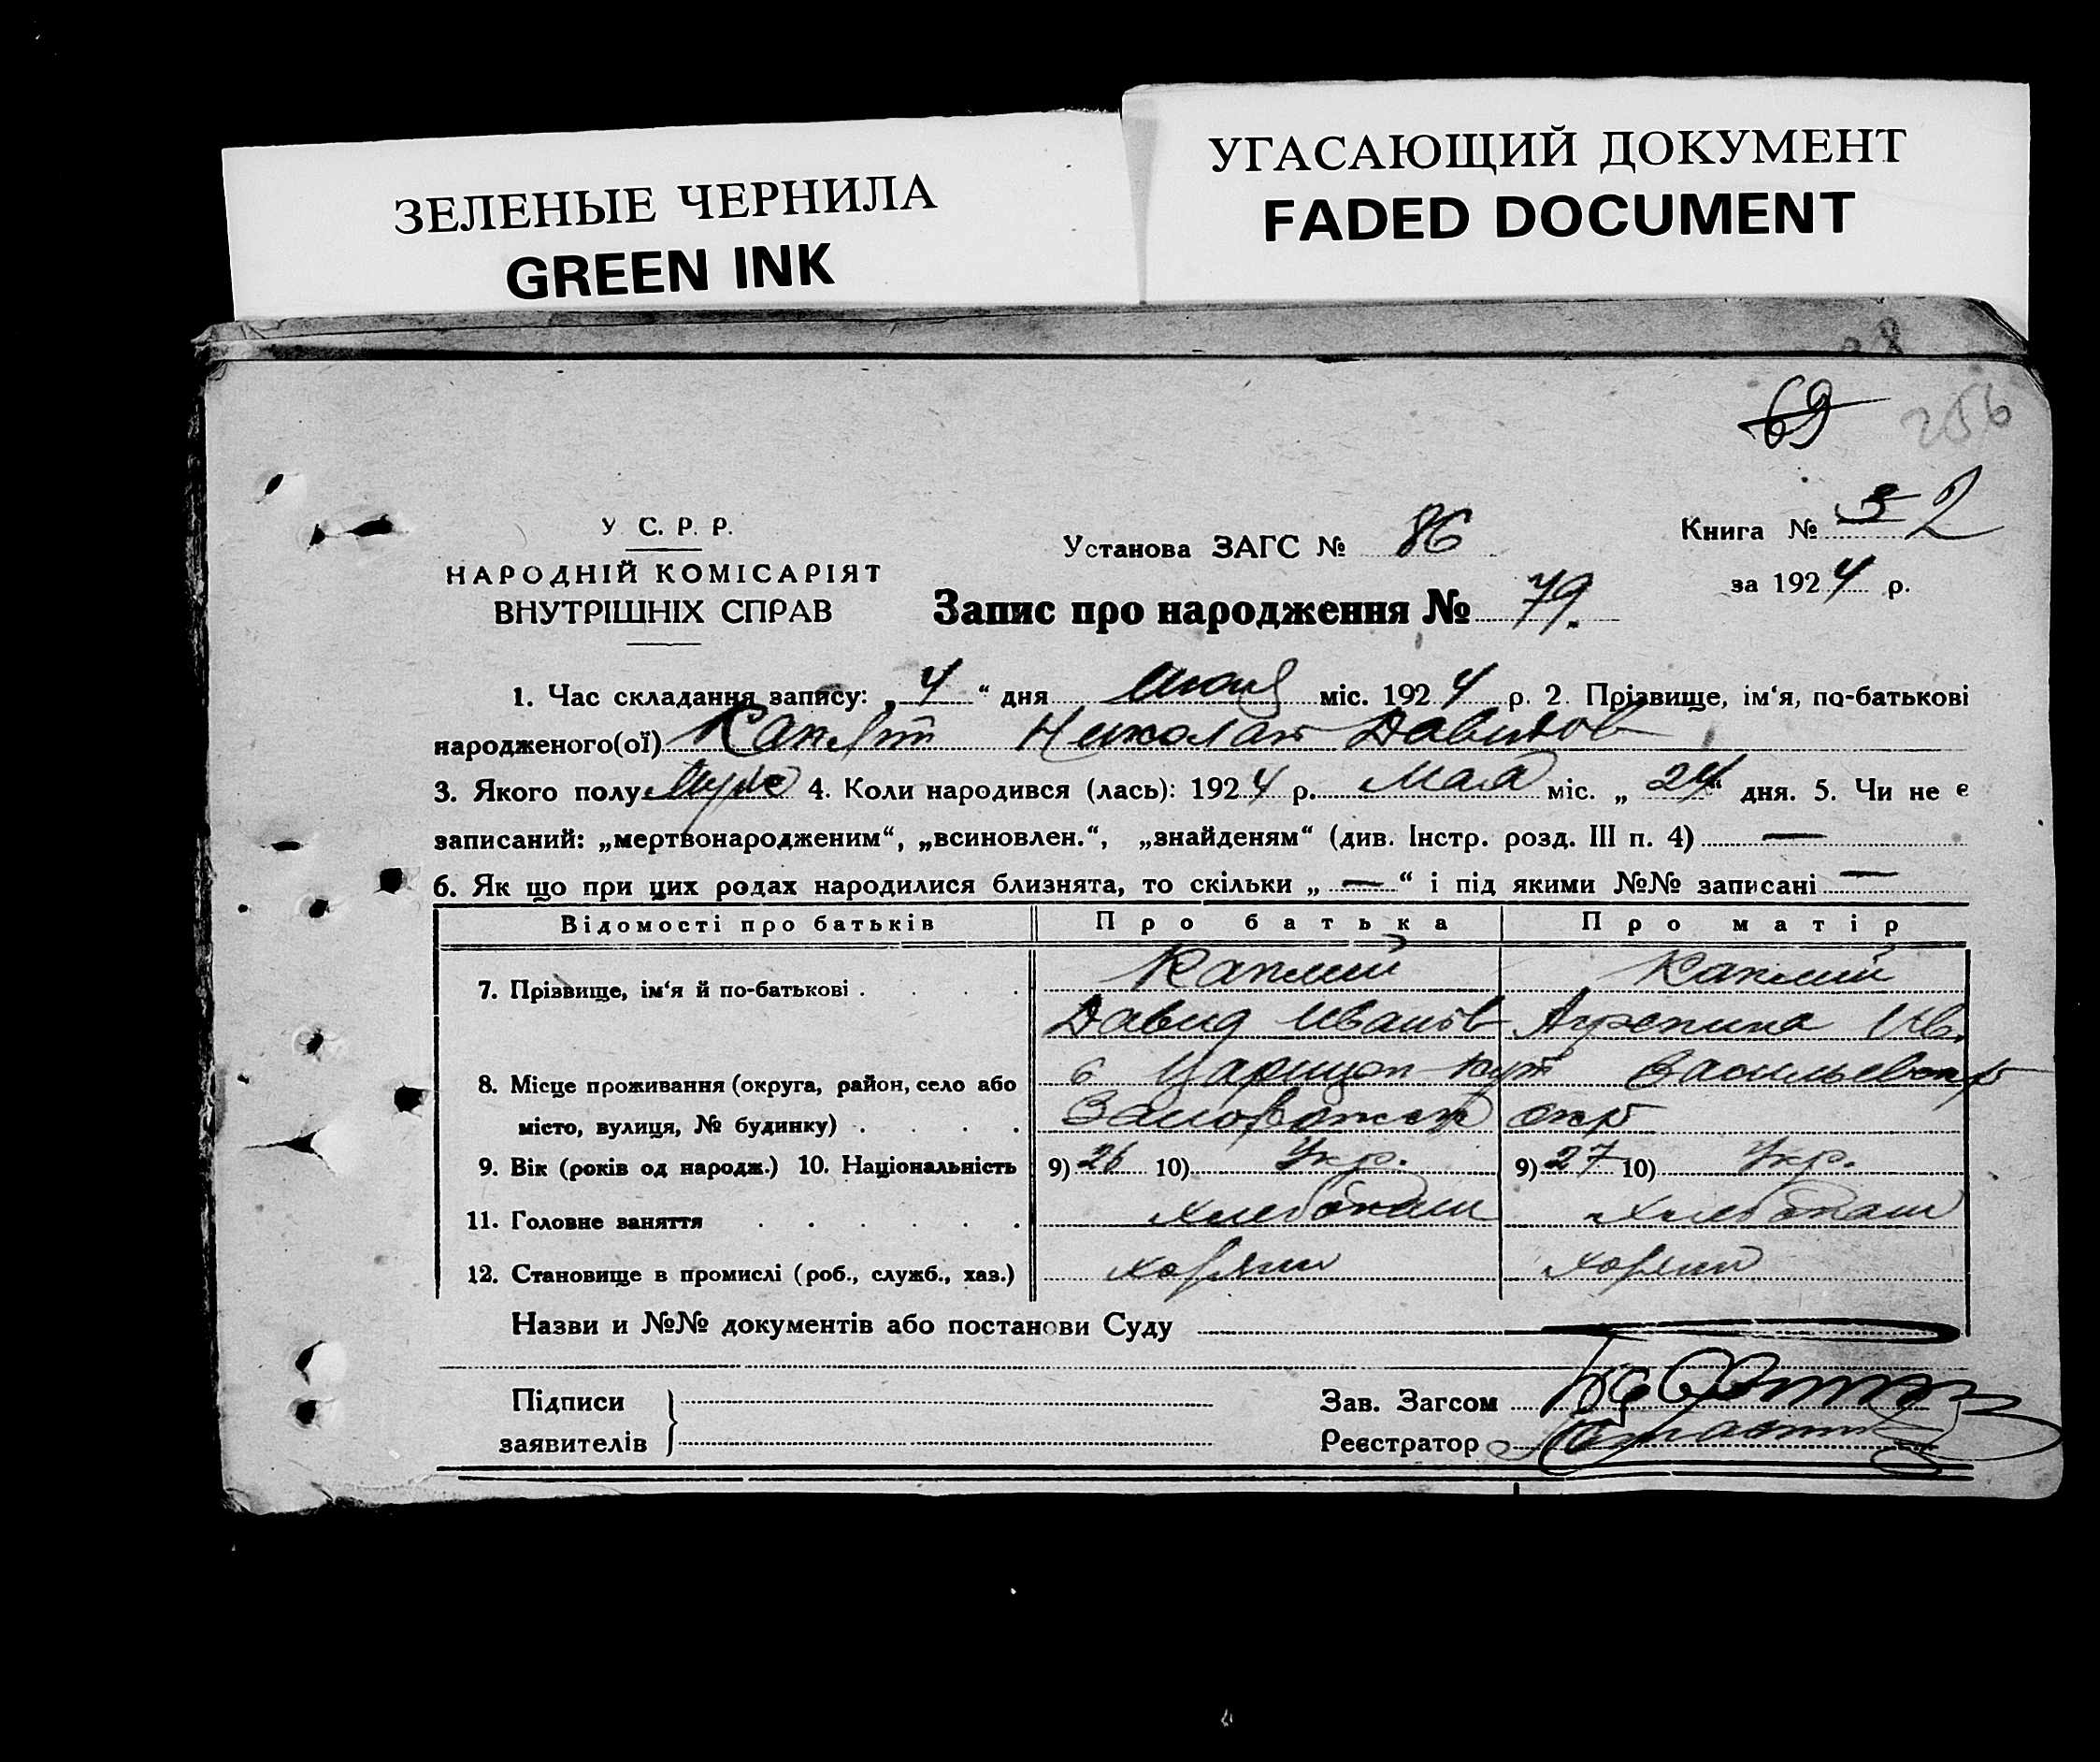 ЗЕЛЕНЫЕ ЧЕРНИЛА
GREEN INK
УГАСАЮЩИЙ ДОКУМЕНТ
FADED DOCUMENT
69
256
У С. Р. Р.
НАРОДНІЙ КОМІСАРІЯТ
ВНУТРІШНІХ СПРАВ
Установа ЗАГС № 86
Книга № 3 2
за 1924 р.
Запис про народження № 79.
1. Час складання запису: „4“ дня міс. 1924 р. 2. Прізвище, ім‘я, по-батькові
народженого(ої) Николай Давидов
3. Якого полу муж 4. Коли народився (лась): 1924 р. Мая міс. „24“ дня. 5. Чи не є
записаний: „мертвонародженим“, „всиновлен.“, „знайденям“ (див. Інстр. розд. III п. 4) —
6. Як що при цих родах народилися близнята, то скільки „—“ і під якими №№ записані —
Відомості про батьків Про батька Про матір
7. Прізвище, ім‘я й по-батькові . . . . Каплий Каплий
Давид Иванов Агрепина Ив.
8. Місце проживання (округа, район, село або с Царицон-Кут Васильевск р
місто, вулиця, № будинку) . . . . Запорожск окр
9. Вік (років од народж.) 10. Національність 9) 26 10) Укр. 9) 27 10) Укр.
11. Головне заняття . . . . . . хлебопаш хлебопаш
12. Становище в промислі (роб., служб., хаз.) хозяин хозяин
Назви и №№ документів або постанови Суду
Підписи
заявителів
Зав. Загсом
Реєстратор